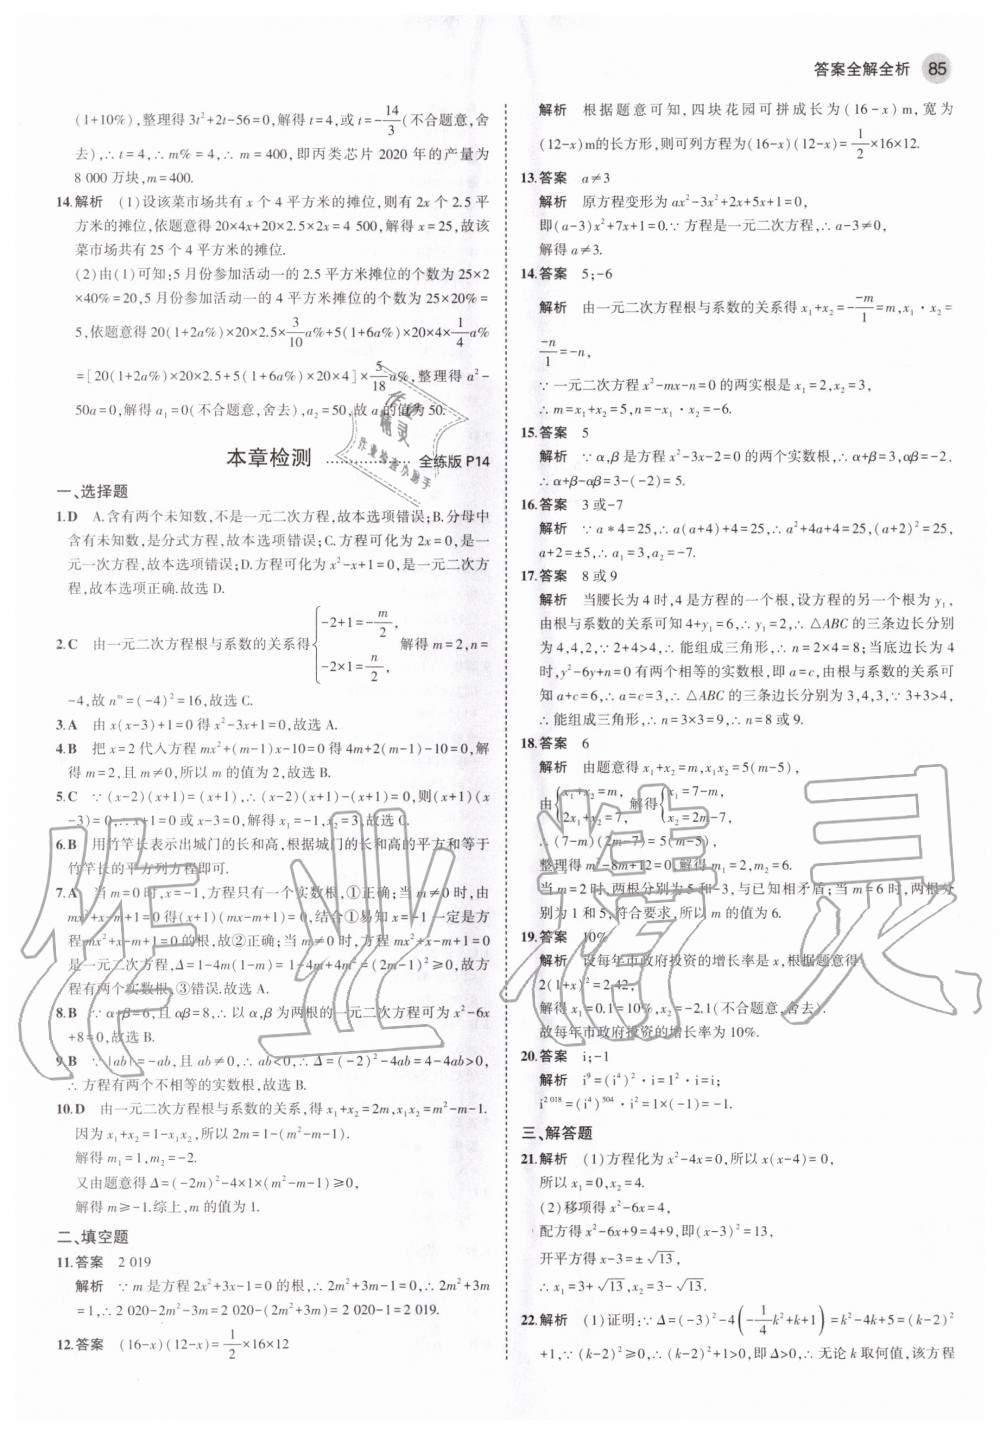 答案全解全析 85
(1+10%),整理得3t²+2t-56=0,解得t=4,或t=-14/3(不合题意,舍
去),∴t=4,∴m%=4,∴m=400,即丙类芯片2020年的产量为
8 000万块,m=400.
14.解析 (1)设该菜市场共有x个4平方米的摊位,则有2x个2.5平
方米的摊位,依题意得20×4x+20×2.5×2x=4 500,解得x=25,故该
菜市场共有25个4平方米的摊位.
(2)由(1)可知:5月份参加活动一的2.5平方米摊位的个数为25×2
×40%=20,5月份参加活动一的4平方米摊位的个数为25×20%=
5,依题意得20(1+2a%)×20×2.5×3/10a%+5(1+6a%)×20×4×1/4a%
=[20(1+2a%)×20×2.5+5(1+6a%)×20×4]×5/18a%,整理得a²-
50a=0,解得a₁=0(不合题意,舍去),a₂=50,故a的值为50.
本章检测 全练版P14
一、选择题
1.D A.含有两个未知数,不是一元二次方程,故本选项错误;B.分母中
含有未知数,是分式方程,故本选项错误;C.方程可化为2x=0,是一
元一次方程,故本选项错误;D.方程可化为x²-x+1=0,是一元二次方
程,故本选项正确.故选D.
2.C 由一元二次方程根与系数的关系得{-2+1=-m/2, -2×1=n/2, 解得m=2,n=
-4,故nᵐ=(-4)²=16,故选C.
3.A 由x(x-3)+1=0得x²-3x+1=0,故选A.
4.B 把x=2代入方程mx²+(m-1)x-10=0得4m+2(m-1)-10=0,解
得m=2,且m≠0,所以m的值为2,故选B.
5.C ∵(x-2)(x+1)=(x+1),∴(x-2)(x+1)-(x+1)=0,则(x+1)(x
-3)=0,∴x+1=0或x-3=0,解得x₁=-1,x₂=3,故选C.
6.B 用竹竿长表示出城门的长和高,根据城门的长和高的平方和等于
竹竿长的平方列方程即可.
7.A 当m=0时,x=-1,方程只有一个实数根,①正确;当m≠0时,由
mx²+x-m+1=0得(x+1)(mx-m+1)=0,结合①易知x=-1一定是方
程mx²+x-m+1=0的根,故②正确;当m≠0时,方程mx²+x-m+1=0
是一元二次方程,Δ=1-4m(1-m)=1-4m+4m²=(2m-1)²≥0,此时
方程有两个实数根,③错误.故选A.
8.B ∵α+β=6,且αβ=8,∴以α,β为两根的一元二次方程可为x²-6x
+8=0,故选B.
9.B ∵|ab|=-ab,且ab≠0,∴ab<0,∴Δ=(-2)²-4ab=4-4ab>0,
∴方程有两个不相等的实数根,故选B.
10.D 由一元二次方程根与系数的关系,得x₁+x₂=2m,x₁x₂=m²-m-1.
因为x₁+x₂=1-x₁x₂,所以2m=1-(m²-m-1).
解得m₁=1,m₂=-2.
又由题意得Δ=(-2m)²-4×1×(m²-m-1)≥0,
解得m≥-1.综上,m的值为1.
二、填空题
11.答案 2 019
解析 ∵m是方程2x²+3x-1=0的根,∴2m²+3m-1=0,∴2m²+3m
=1,∴2 020-2m²-3m=2 020-(2m²+3m)=2 020-1=2 019.
12.答案 (16-x)(12-x)=1/2×16×12
解析 根据题意可知,四块花园可拼成长为(16-x)m,宽为
(12-x)m的长方形,则可列方程为(16-x)(12-x)=1/2×16×12.
13.答案 a≠3
解析 原方程变形为ax²-3x²+2x+5x+1=0,
即(a-3)x²+7x+1=0.∵方程是一元二次方程,∴a-3≠0,
解得a≠3.
14.答案 5;-6
解析 由一元二次方程根与系数的关系得x₁+x₂=--m/1=m,x₁·x₂=
-n/1=-n,
∵一元二次方程x²-mx-n=0的两实根是x₁=2,x₂=3,
∴m=x₁+x₂=5,n=-x₁·x₂=-6.
15.答案 5
解析 ∵α,β是方程x²-3x-2=0的两个实数根,∴α+β=3,αβ=-2,
∴α+β-αβ=3-(-2)=5.
16.答案 3或-7
解析 ∵a*4=25,∴a(a+4)+4=25,∴a²+4a+4=25,(a+2)²=25,
a+2=±5,∴a₁=3,a₂=-7.
17.答案 8或9
解析 当腰长为4时,4是方程的一个根,设方程的另一个根为y₁,
由根与系数的关系可知4+y₁=6,∴y₁=2,∴△ABC的三条边长分别
为4,4,2,∵2+4>4,∴能组成三角形,∴n=2×4=8;当底边长为4
时,y²-6y+n=0有两个相等的实数根,即a=c,由根与系数的关系可
知a+c=6,∴a=c=3,∴△ABC的三条边长分别为3,4,3,∵3+3>4,
∴能组成三角形,∴n=3×3=9,∴n=8或9.
18.答案 6
解析 由题意得x₁+x₂=m,x₁x₂=5(m-5),
由{x₁+x₂=m, 2x₁+x₂=7, 解得{x₁=7-m, x₂=2m-7,
∴(7-m)(2m-7)=5(m-5),
整理得m²-8m+12=0,解得m₁=2,m₂=6.
当m=2时,两根分别为5和-3,与已知相矛盾;当m=6时,两根分
别为1和5,符合要求,所以m的值为6.
19.答案 10%
解析 设每年市政府投资的增长率是x,根据题意得
2(1+x)²=2.42,
解得x₁=0.1=10%,x₂=-2.1(不合题意,舍去).
故每年市政府投资的增长率为10%.
20.答案 i;-1
解析 i⁹=(i⁴)²·i=1²·i=i;
i²⁰¹⁸=(i⁴)⁵⁰⁴·i²=1×(-1)=-1.
三、解答题
21.解析 (1)方程化为x²-4x=0,所以x(x-4)=0,
所以x₁=0,x₂=4.
(2)移项得x²-6x=4,
配方得x²-6x+9=4+9,即(x-3)²=13,
开平方得x-3=±√13,
∴x₁=3+√13,x₂=3-√13.
22.解析 (1)证明:∵Δ=(-3)²-4(-1/4k²+k+1)=k²-4k+5=(k-2)²
+1,∵(k-2)²≥0,∴(k-2)²+1>0,即Δ>0,∴无论k取何值,该方程
作业精灵
作业精灵
作业检查小助手